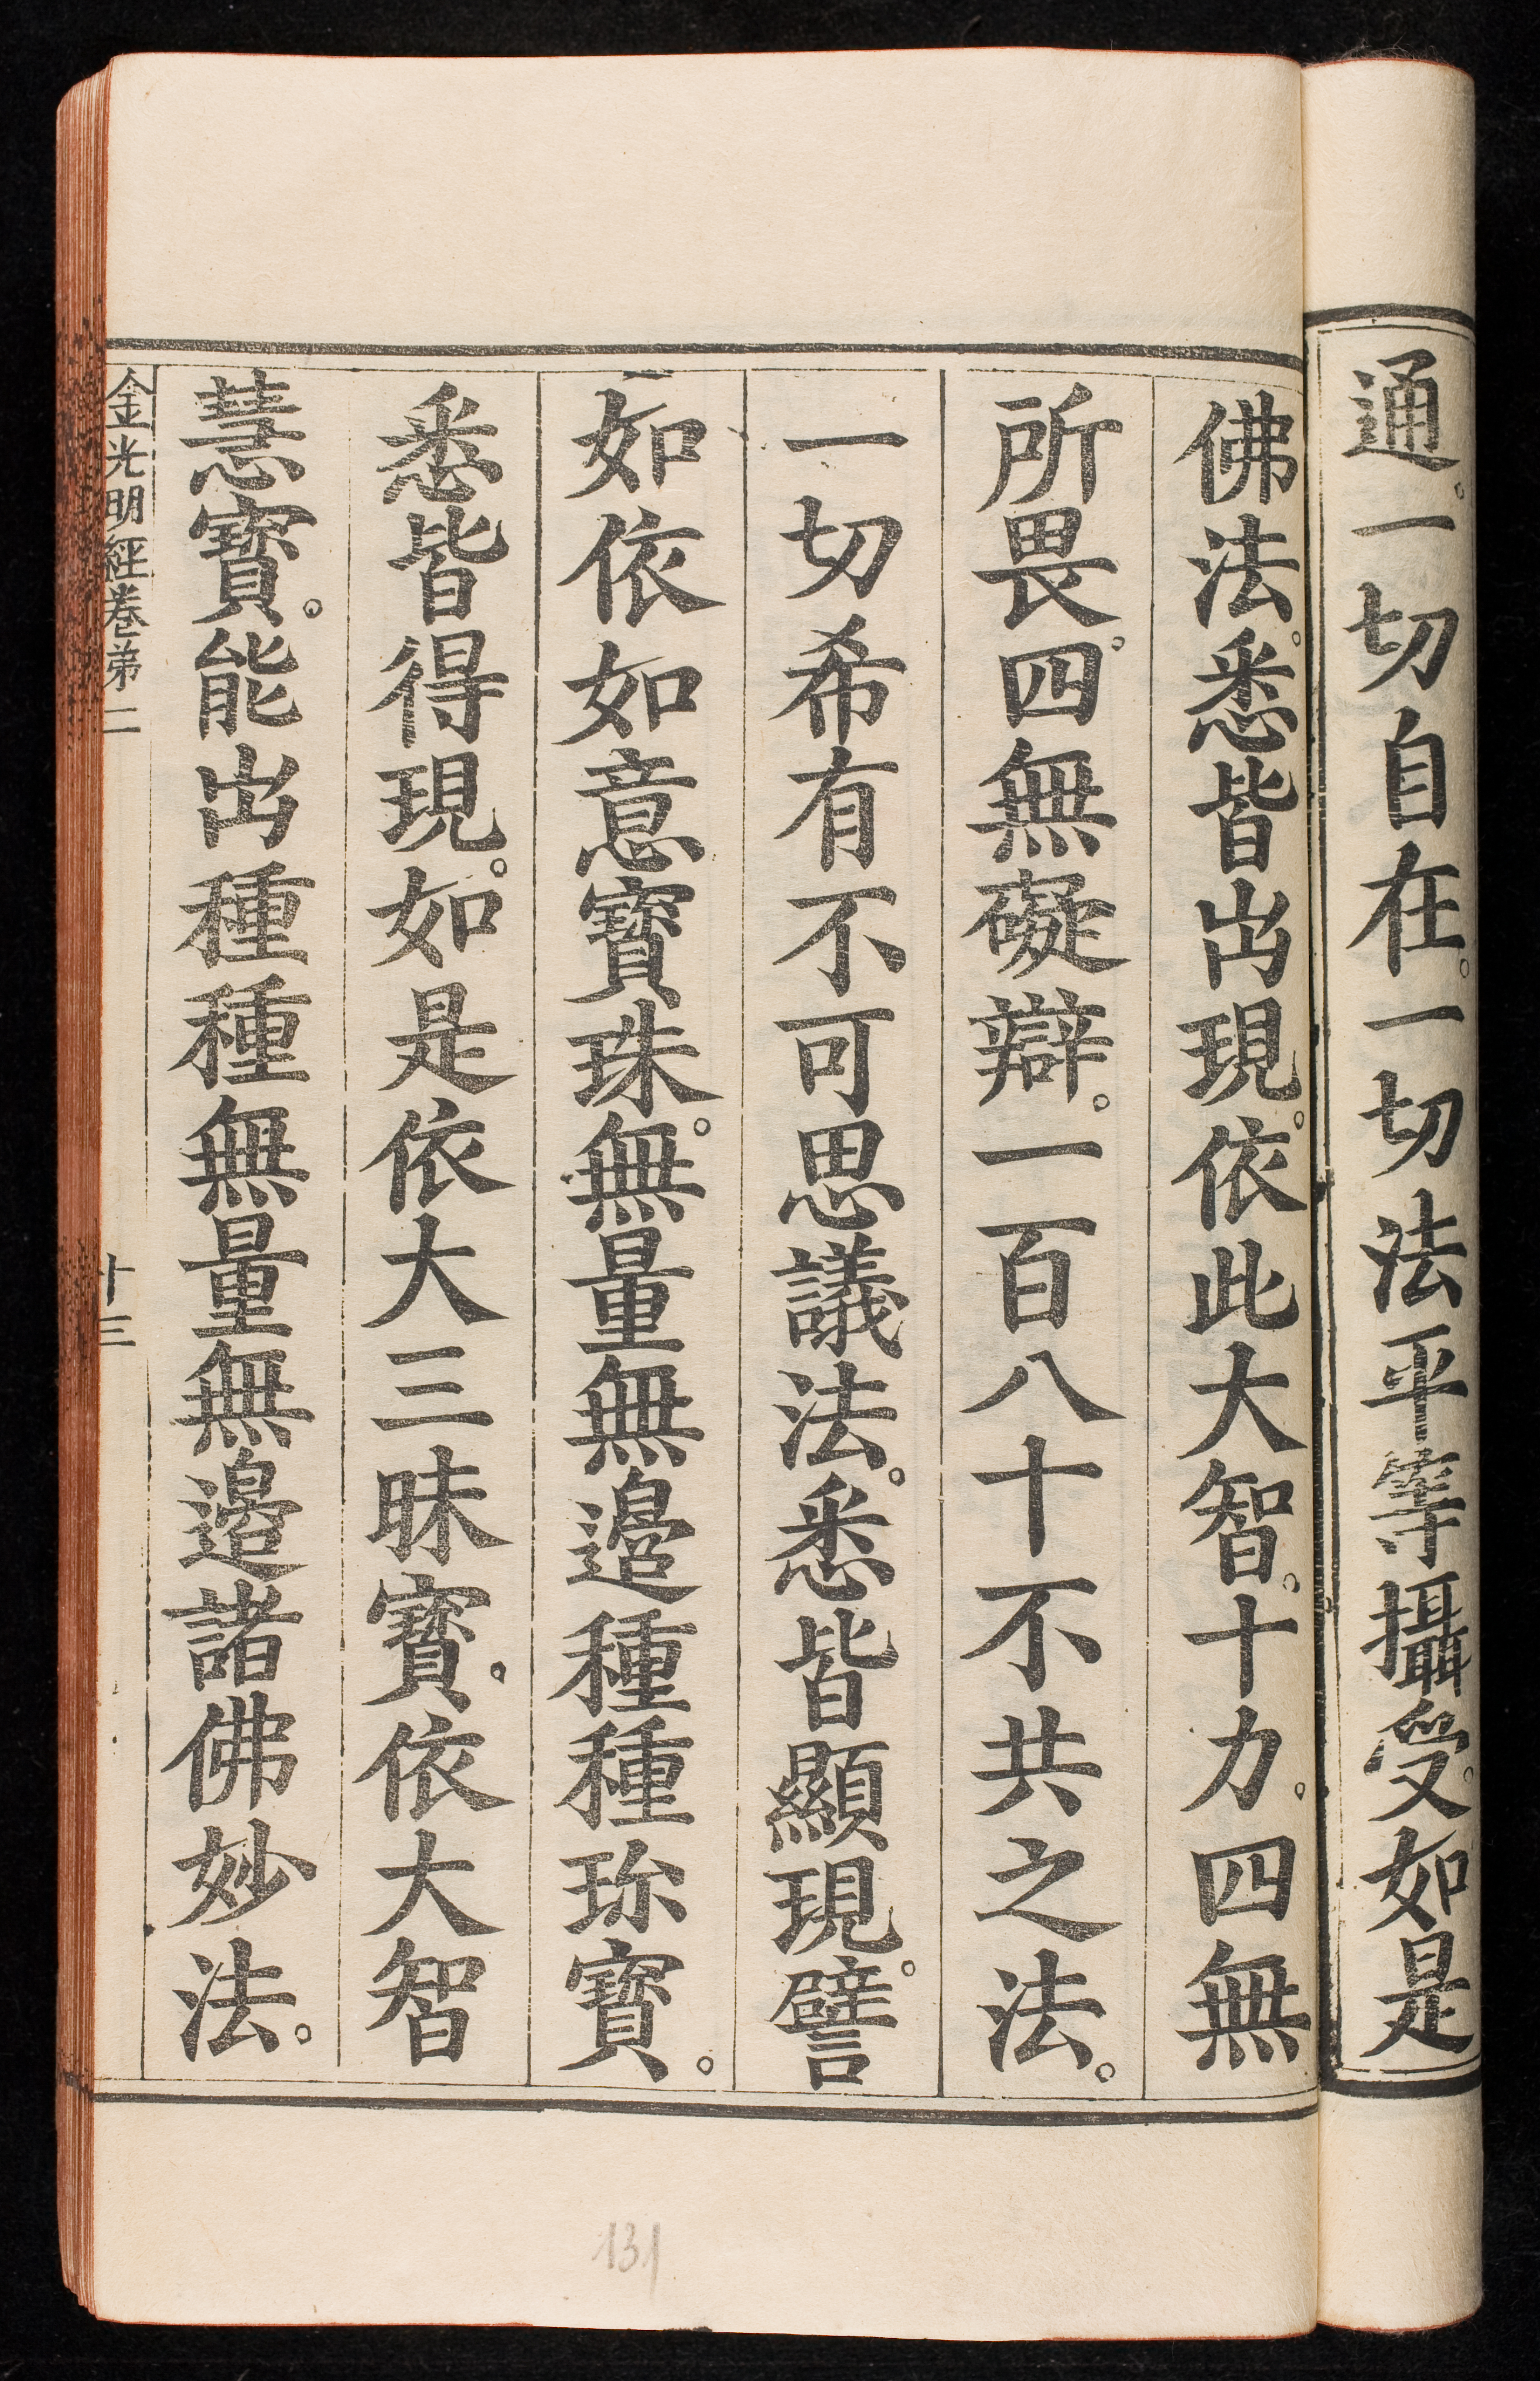 通。一切自在。一切法平等攝受。如是
佛法。悉皆出現。依此大智。十力。四無
所畏。四無礙辯。一百八十不共之法。
一切希有不可思議法。悉皆顯現。譬
如依如意寶珠。無量無邊種種珎寶。
悉皆得現。如是依大三昧寶。依大智
慧寶。能出種種無量無邊諸佛妙法。
金光明經卷第二
十三
131